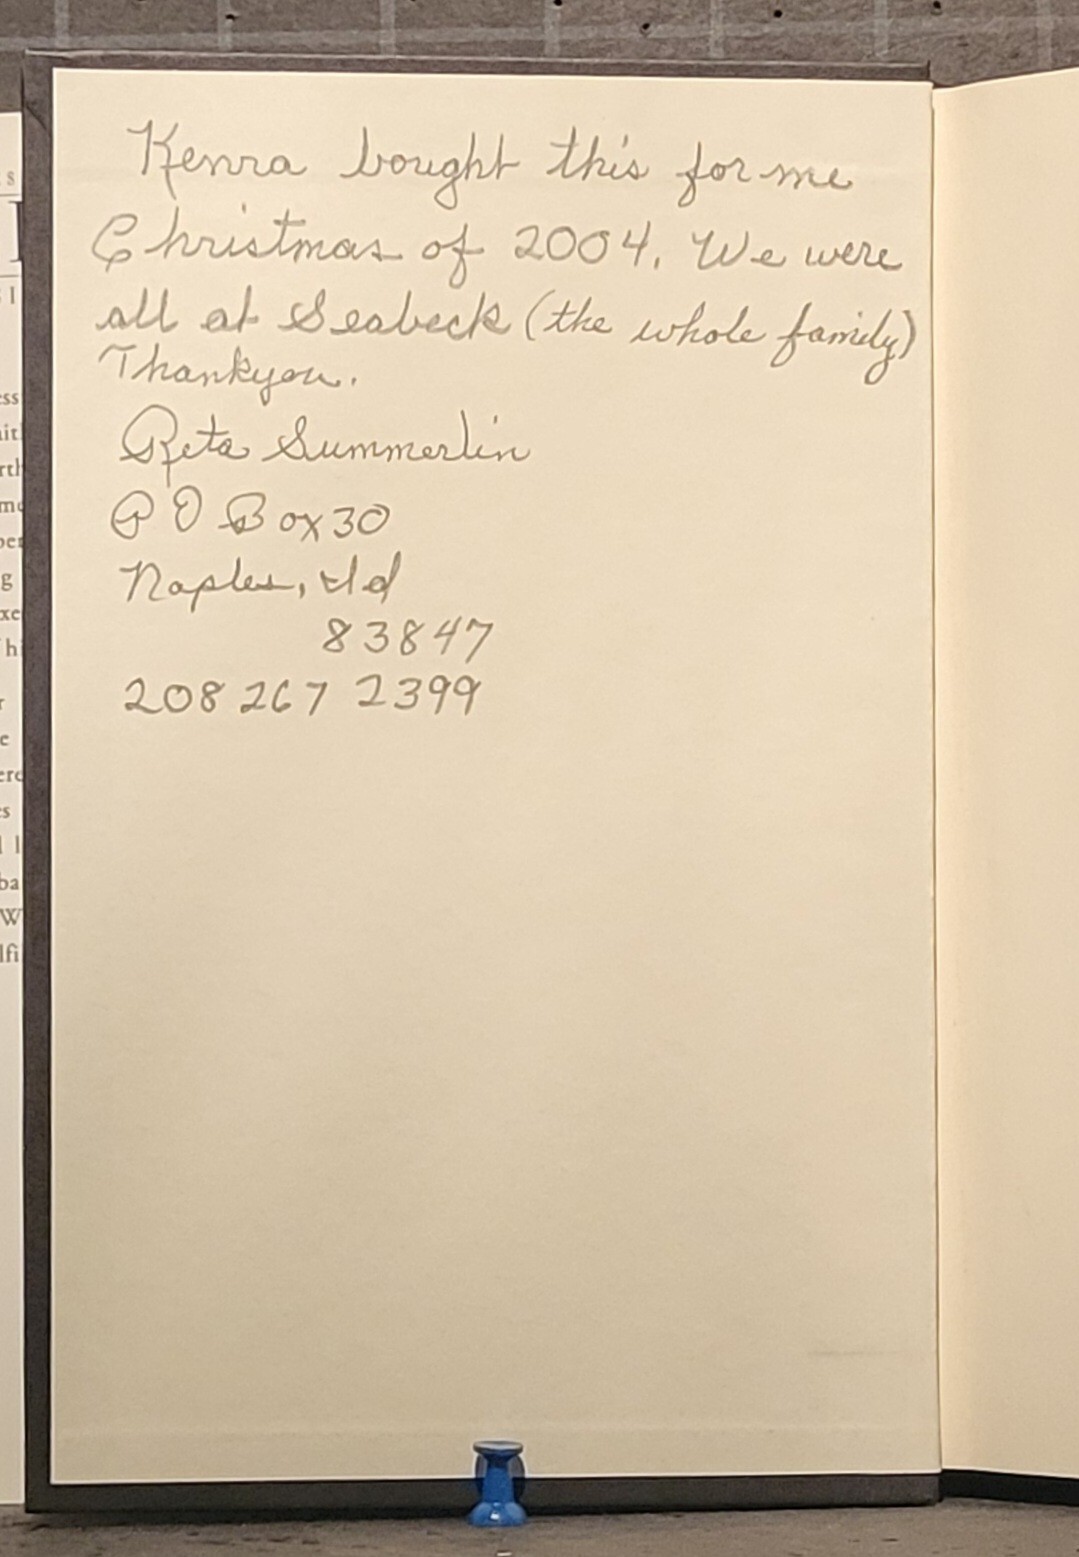 Kenra bought this for me
Christmas of 2004. We were
all at Seabeck (the whole family)
Thankyou.
Reta Summerlin
P O Box 30
Naples, Id
83847
208 267 2399